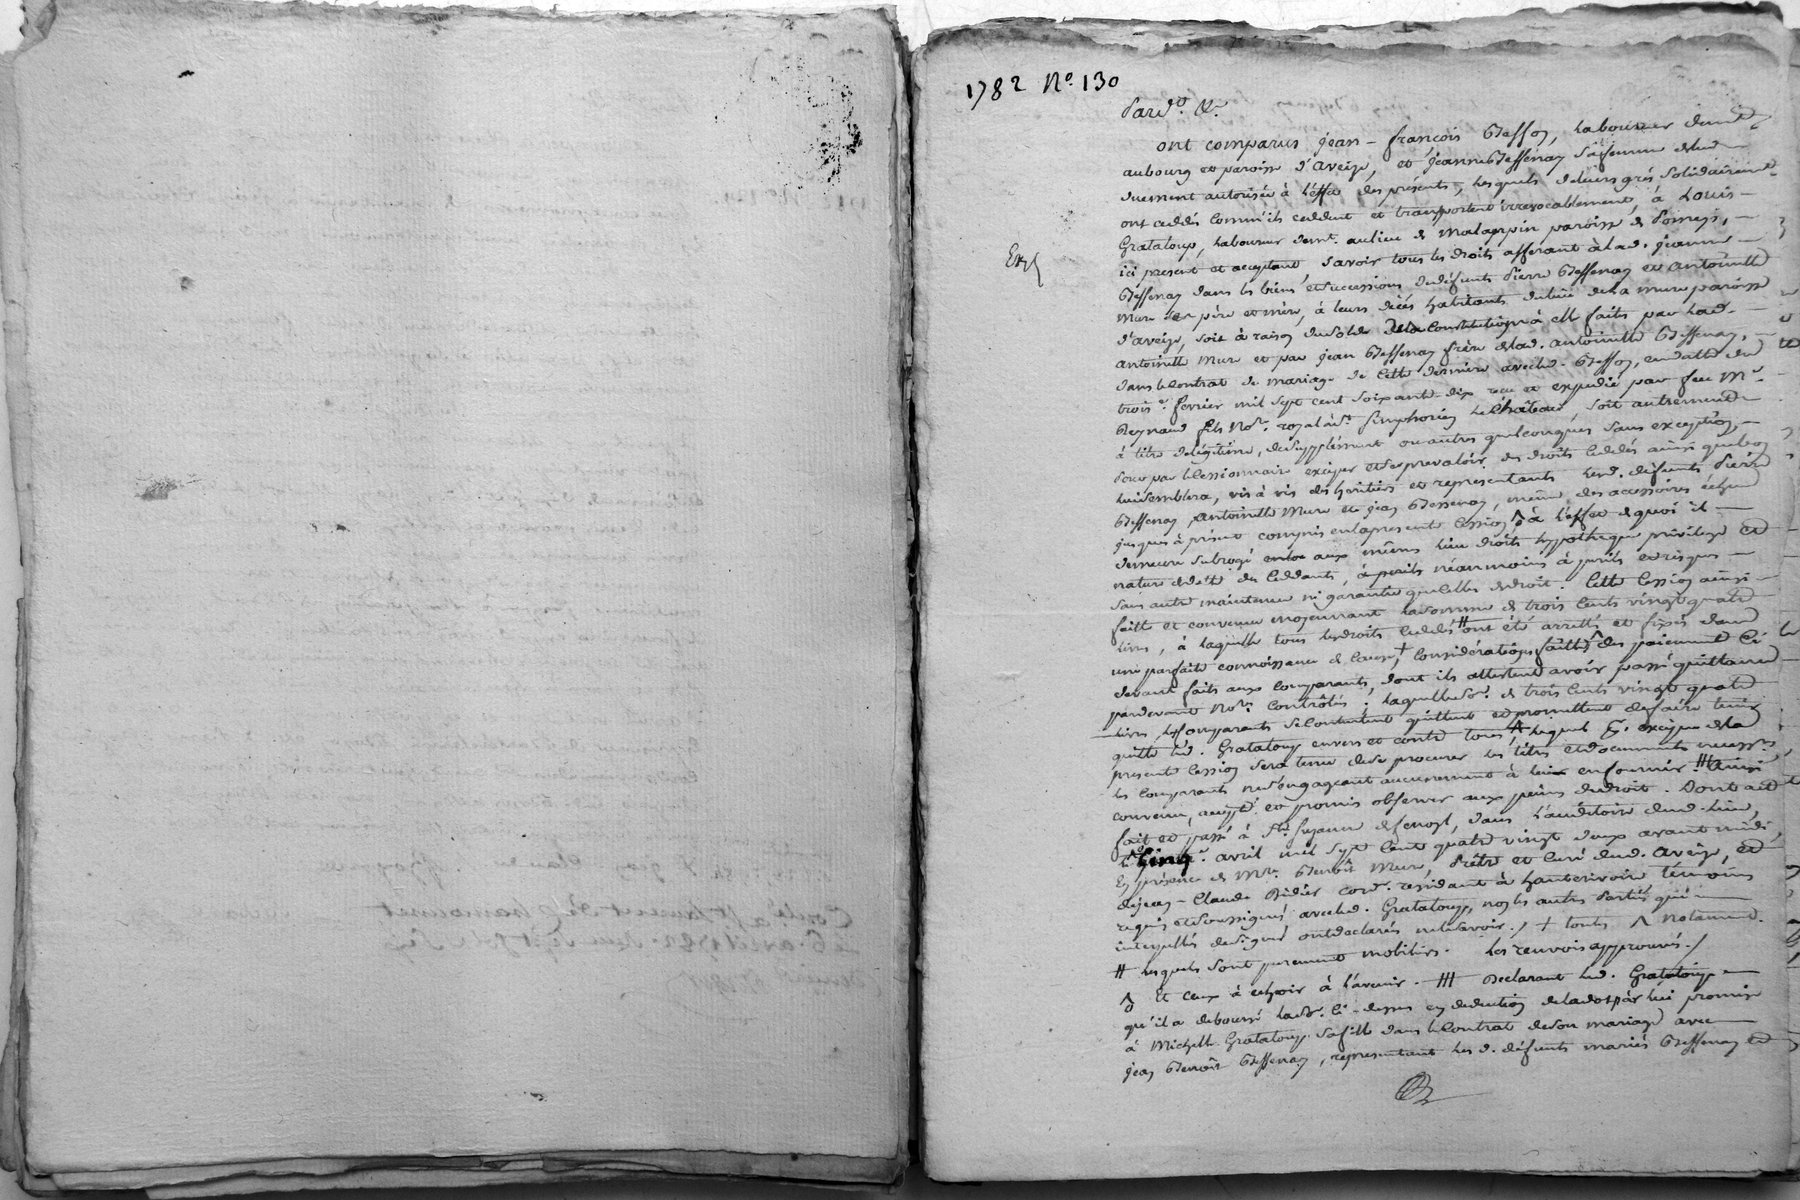 1782 N° 130
Pard.° &.
ont comparus jean-françois Besson, laboureur demt.
au bourg et paroisse d'aveize, et jeanne Bessenay sa femme de lui
duement autorisée à l'effet des présents, lesquels de leurs grés solidairemt.
ont cédés comm'ils cedent et transportent irrevocablement, à Louis
Grataloup, laboureur demt. au lieu de Malagrin paroisse de Pomeys,
Exp
ici present et acceptant, savoir tous les droits afferant à lad. jeanne
Bessenay dans les biens et successions de défunts Pierre Bessenay et antoinette
Mure ses père et mère, à leurs décés habitants du lieu de la mure paroisse
d'aveize, soit à raison du solde de la constitution à elle faite par lad.
antoinette Mure et par jean Bessenay frère de lad. antoinette Bessenay,
dans le contrat de mariage de cette dernière avec led. Besson, en datte du
trois.e fevrier mil sept cent soixante-dix reçu et expedié par feu Me.
Reynaud fils Not.e royal à St. Simphorien le Château, soit autrement
à titre de légitime, de supplément ou autres quelconques sans exception,
pour par le cessionnaire exiger et se prevaloir des droits cédés ainsi que bon
lui semblera, vis à vis des heritiers et representants lesd. défunts Pierre
Bessenay antoinette Mure et jean Bessenay, même des accessoires échus
jusques à présent compris en la presente cession, à l'effet de quoi il
demeure subrogé aux mêmes lieu droits hypotheque privilege et
nature de dette des cedants, à perils néanmoins à perils et risques
sans autre maintenue ni garantie que celles de droit. Cette cession ainsi
faite et convenue moyennant la somme de trois cents vingt quatre
livres, à laquelle tous les droits cédés # ont été arrettés et fixés dans
une parfaite connoissance de cause, + considérations faittes ^ des paiements ci
devant faits aux comparants, dont ils attestent avoir passé quittance
pardevant Not.e contrôlés; laquelle so.e de trois cents vingt quatre
livres, les comparants se contentent quittent et promettent de faire tenir
quitte led. Grataloup envers et contre tous, lequel pr. exiger de la
presente cession sera tenu de se procurer les titres et documents necess.res
les comparants ne s'engageant aucunement à lui en fournir. ### ainsi
convenu, accepté et promis observer aux peines de droit. Dont acte
fait et passé à Ste. foy, dans l'auditoire dud. lieu,
le cinq.e avril mil sept cent quatre vingt deux avant midi,
En présence de Mre. Benoît Mure, Prêtre et Curé dud. Aveize, et
de jean-Claude Bidier cord.r residant à hauterivoire témoins
requis et soussignés avec led. Grataloup, non les autres Parties qui
interpellés de signer ont declarés ne le savoir. / + toutes ^ notamment.
# lesquels sont purement mobiliers. Les renvois approuvés. /
^ Et ceux à echoir à l'avenir. ### Declarant led. Grataloup
qu'il a deboursé lad. so.e ci-dessus en deduction de la dot par lui promise
à Michelle Grataloup sa fille dans le contrat de son mariage avec
jean Benoît Bessenay, representant lesd. défunts mariés Bessenay et